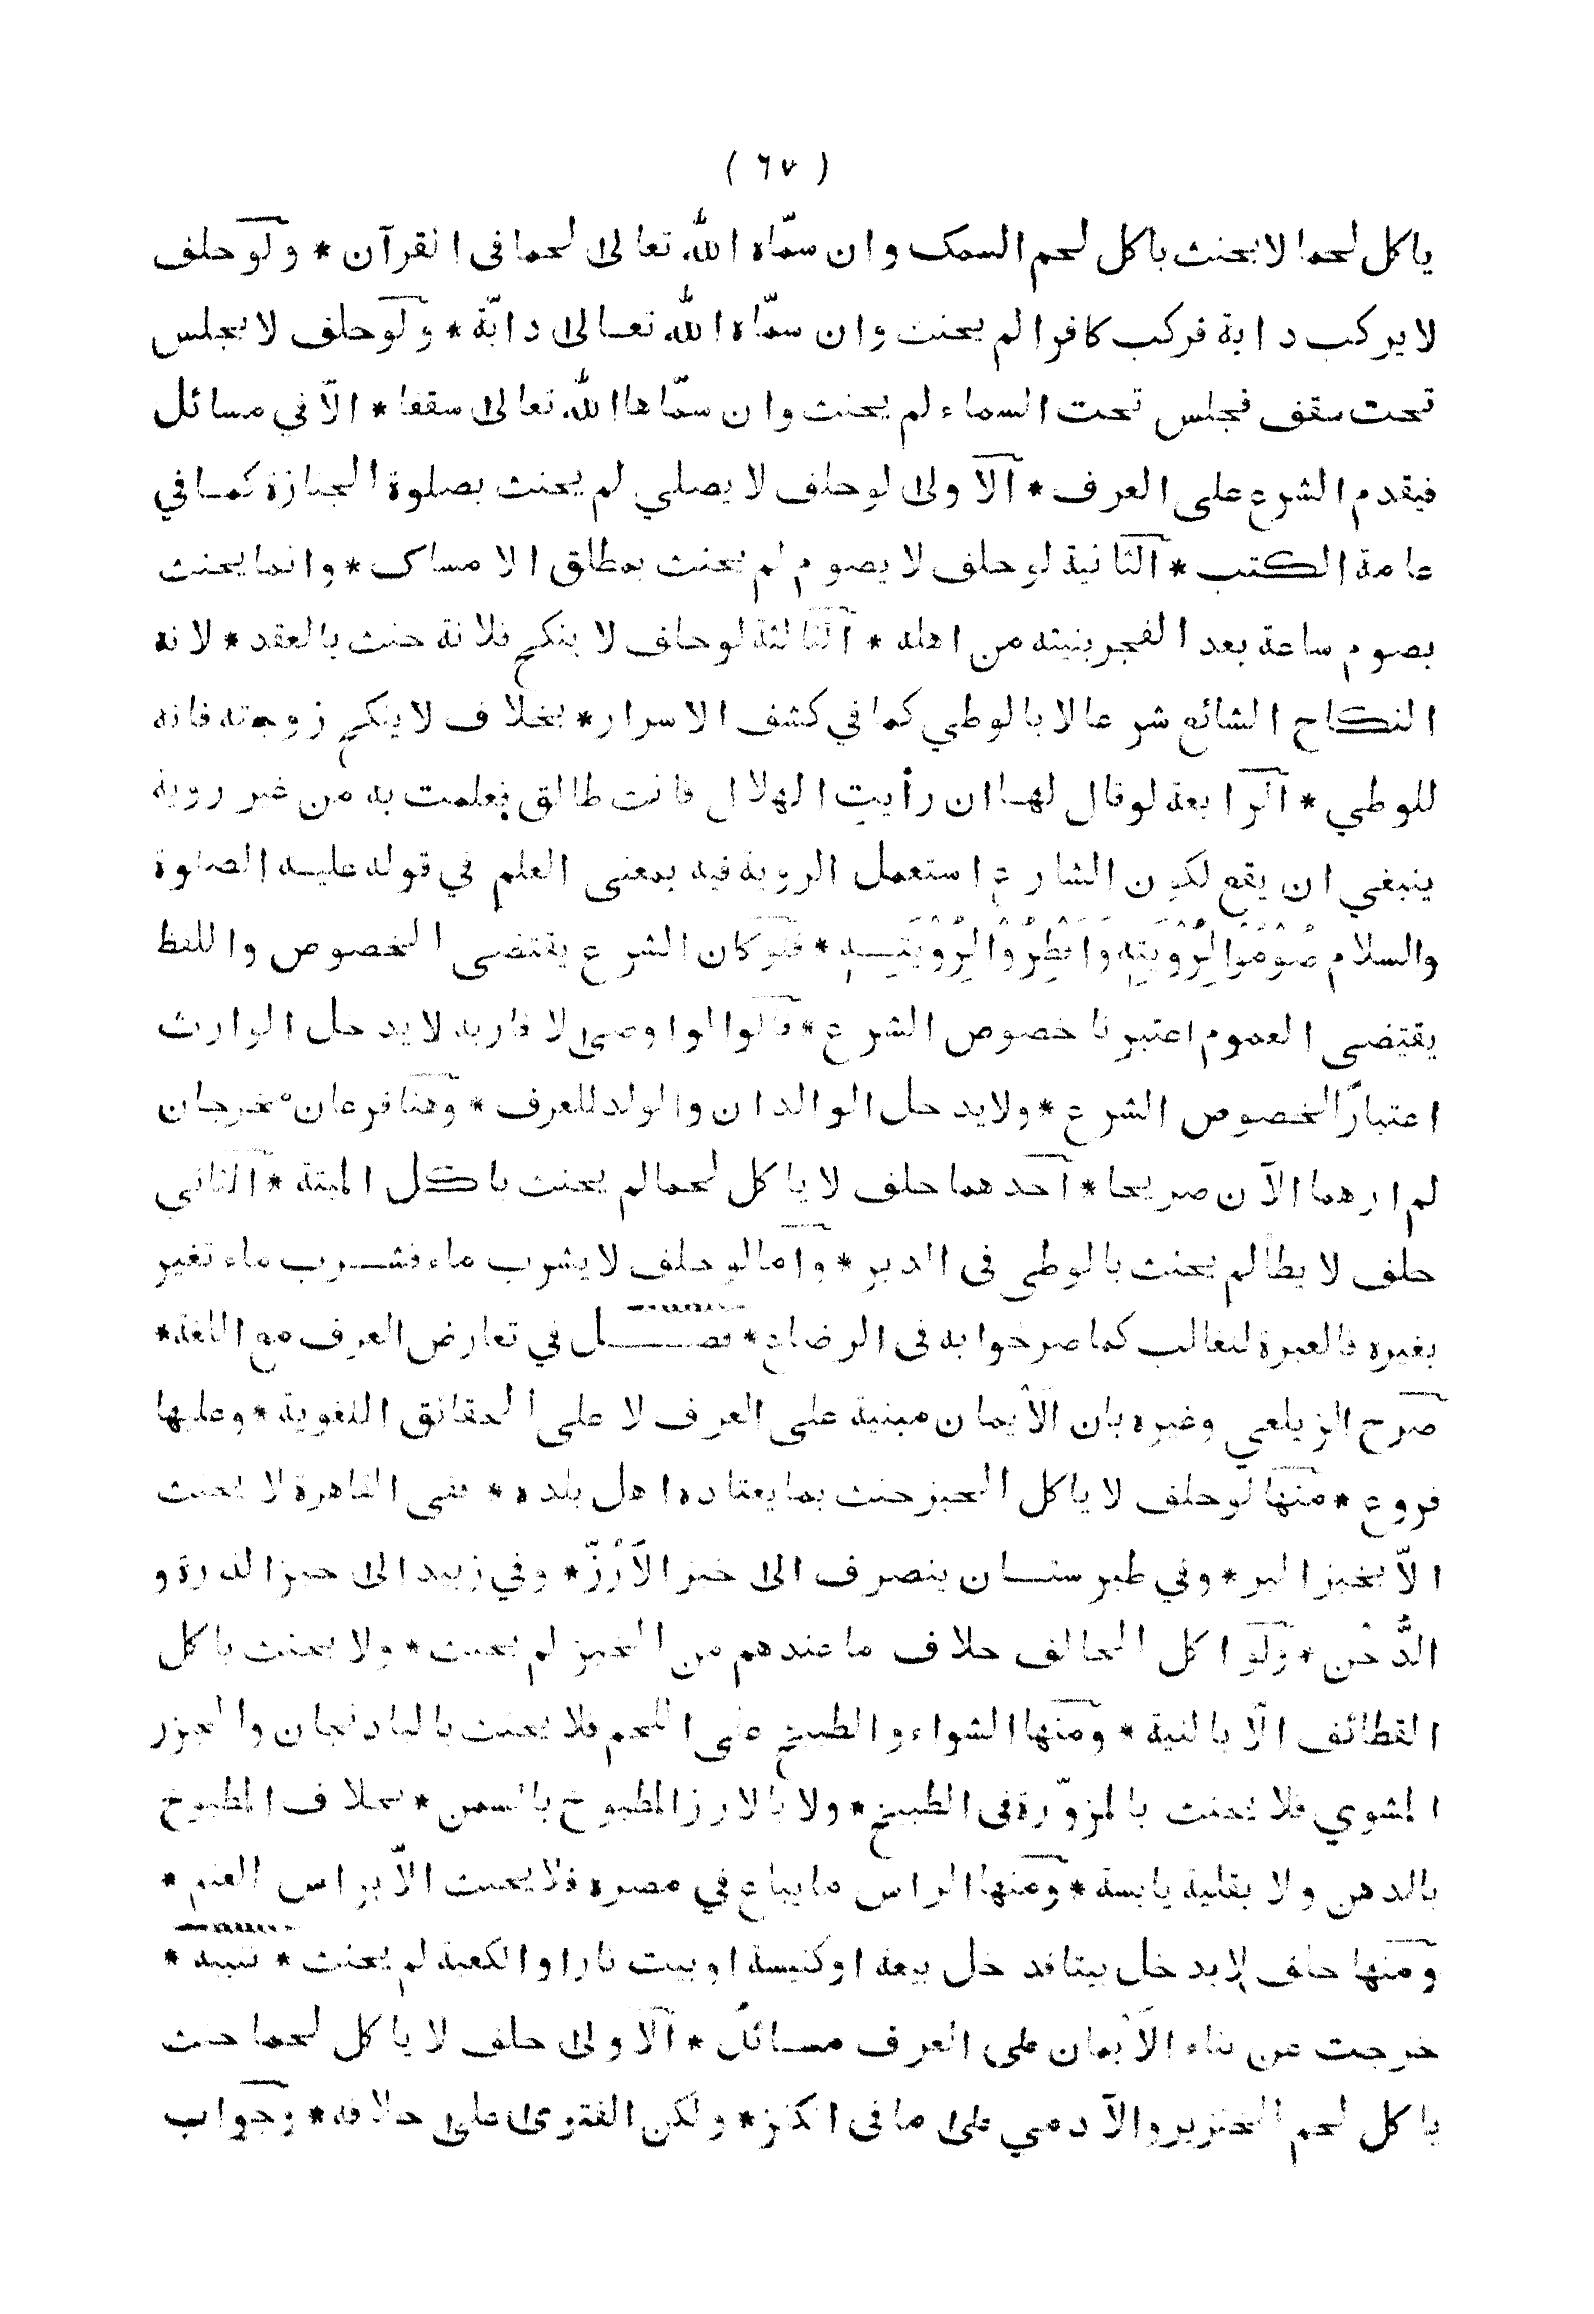 ( ٦٧ )
ياكل لحما لا يحنث باكل لحم السمك وان سمّاه الله تعالى لحما فى القرآن * ولو حلف
لا يركب دابة فركب كافرا لم يحنث وان سمّاه الله تعالى دابّة * ولو حلف لا يجلس
تحت سقف فجلس تحت السماء لم يحنث وان سمّاها الله تعالى سقفا * الّا في مسائل
فيقدم الشرع على العرف * الاولى لو حلف لا يصلي لم يحنث بصلوة الجنازة كما في
عامة الكتب * الثانية لو حلف لا يصوم لم يحنث بمطلق الامساك * وانما يحنث
بصوم ساعة بعد الفجر بنيته من اهله * الثالثة لو حلف لا ينكح فلانة حنث بالعقد * لانه
النكاح الشائع شرعا لا بالوطي كما في كشف الاسرار * بخلاف لا ينكح زوجته فانه
للوطي * الرابعة لو قال لها ان رأيت الهلال فانت طالق فعلمت به من غير روية
ينبغي ان يقع لكون الشارع استعمل الروية فيه بمعنى العلم في قوله عليه الصلوة
والسلام صُوْمُوْا لِرُؤْيَتِهِ وَاَفْطِرُوْا لِرُؤْيَتِهِ * فلو كان الشرع يقتضى الخصوص واللفظ
يقتضى العموم اعتبرنا خصوص الشرع * قالوا لو اوصى لاقاربه لا يدخل الوارث
اعتبارًا لخصوص الشرع * ولا يدخل الوالدان والولد للعرف * وهنا فرعان مخرجان
لم ارهما الآن صريحا * احدهما حلف لا ياكل لحما لم يحنث باكل الميتة * الثاني
حلف لا يطأ لم يحنث بالوطي فى الدبر * واما لو حلف لا يشرب ماء فشرب ماء تغير
بغيره فالعبرة للغالب كما صرحوا به فى الرضاع * فصل في تعارض العرف مع اللغة *
صرح الزيلعي وغيره بان الأيمان مبنية على العرف لا على الحقائق اللغوية * وعليها
فروع * منها لو حلف لا ياكل الخبز حنث بما يعتاده اهل بلده * ففى القاهرة لا يحنث
الّا بخبز البر * وفي طبرستان ينصرف الى خبز الاَرُزّ * وفي زبيد الى خبز الذرة و
الدُّخْن * ولو اكل الحالف خلاف ما عندهم من الخبز لم يحنث * ولا يحنث باكل
القطائف الّا بالنية * ومنها الشواء والطبيخ على اللحم فلا يحنث بالباذنجان والجزر
المشوي فلا يحنث بالمزوّرة فى الطبيخ * ولا بالارز المطبوخ بالسمن * بخلاف المطبوخ
بالدهن ولا بقلية يابسة * ومنها الراس ما يباع في مصره فلا يحنث الّا براس الغنم *
ومنها حلف لا يدخل بيتا فدخل بيعة او كنيسة او بيت نار او الكعبة لم يحنث * تنبيه *
خرجت عن بناء الأيمان على العرف مسائل * الاولى حلف لا ياكل لحما حنث
باكل لحم الخنزير والآدمي على ما فى الكنز * ولكن الفتوى على خلافه * وجواب